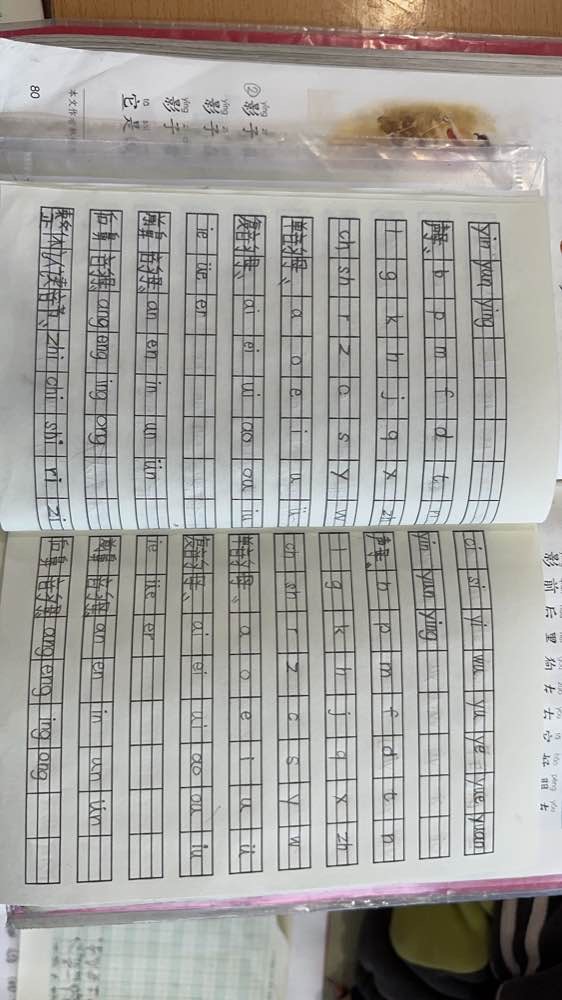 ② 影子
影子
影子
80
yin yun ying
声母、b p m f d t n
l g k h j q x zh
ch sh r z c s y w
单韵母、a o e i u ü
复韵母、ai ei ui ao ou iu
ie üe er
前鼻韵母 an en in un ün
后鼻韵母 ang eng ing ong
整体认读音节、zhi chi shi ri zi
ci si yi wu yu ye yue yuan
yin yun ying
声母、b p m f d t n
l g k h j q x zh
ch sh r z c s y w
单韵母、a o e i u ü
复韵母、ai ei ui ao ou iu
ie üe er
前鼻韵母 an en in un ün
后鼻韵母 ang eng ing ong
影 前 后 黑 狗 左 右 它 好 朋 友